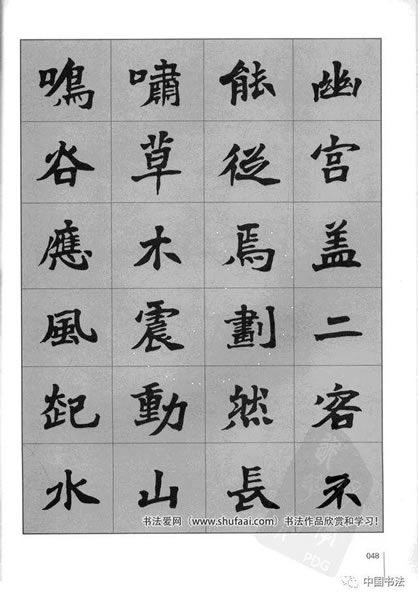 幽宫盖二客不
能從焉劃然長
嘯草木震動山
鳴谷應風起水
书法爱网（www.shufaai.com）书法作品欣赏和学习！
048
中国书法